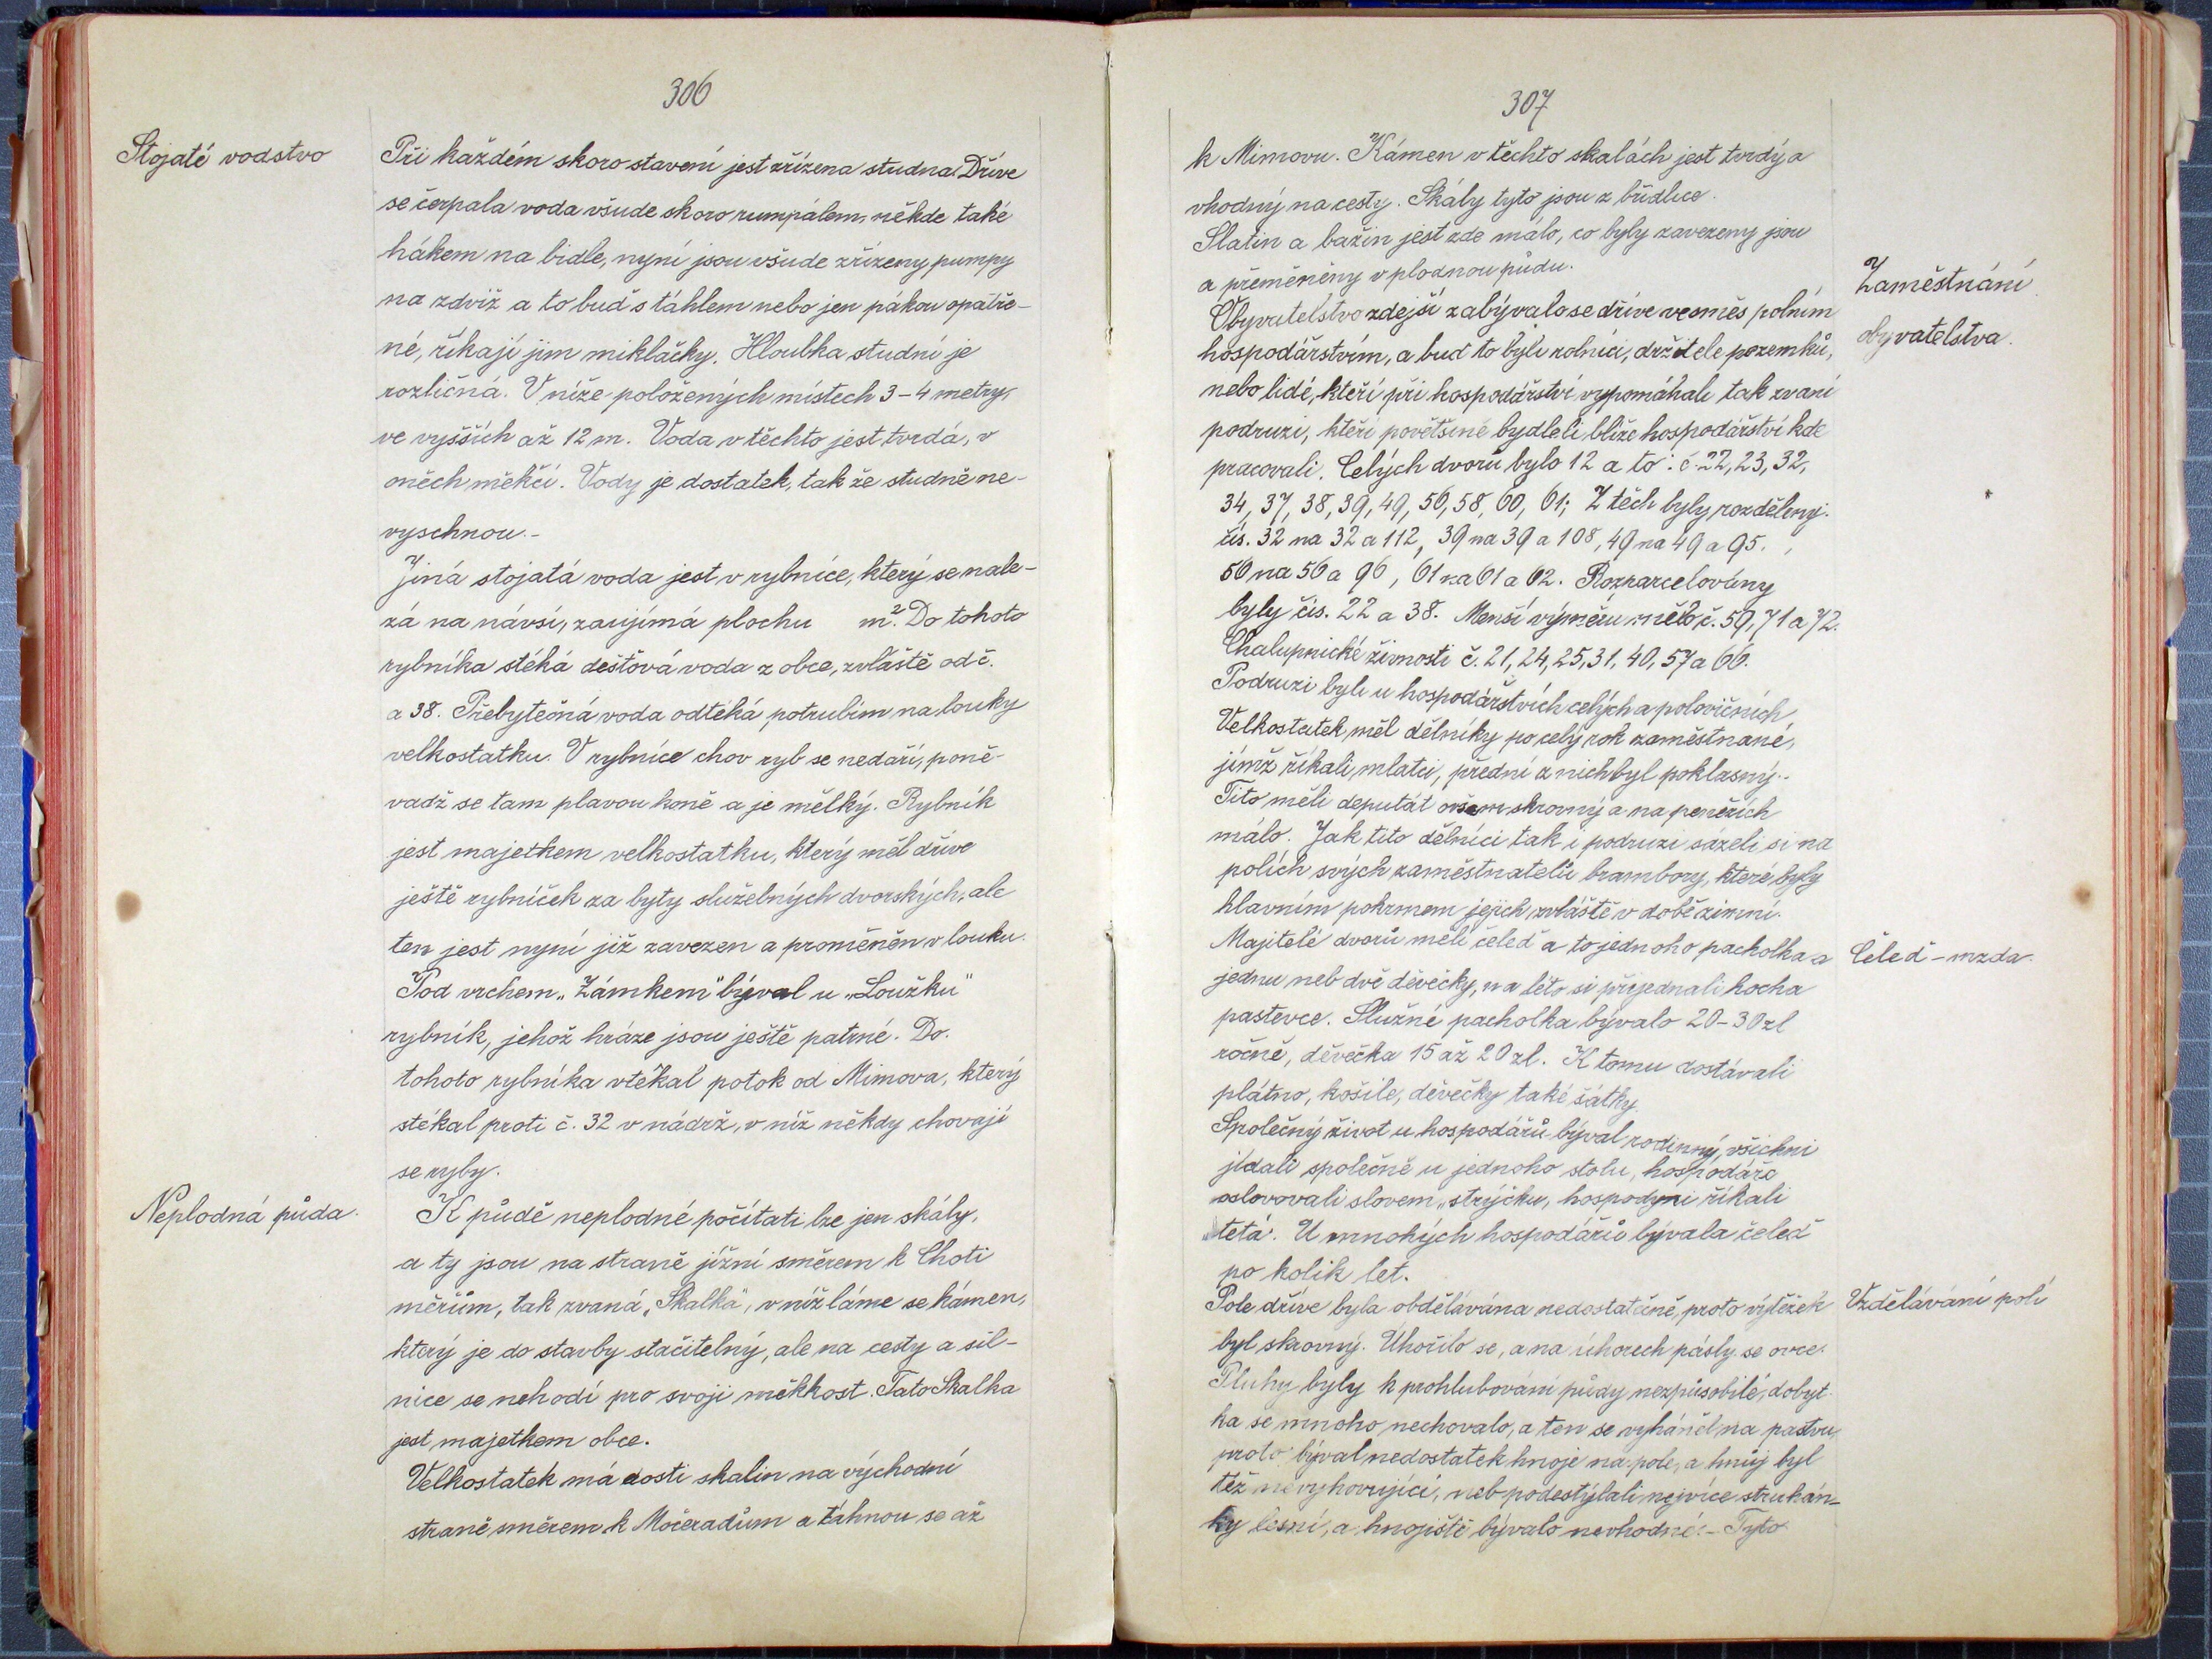 306
Stojaté vodstvo
Při každém skoro stavení jest zřízena studna. Dříve
se čerpala voda všude skoro rumpálem, někde také
hákem na bidle, nyní jsou všude zřízeny pumpy
na zdviž a to buď s táhlem nebo jen pákou opatře-
né, říkají jim mikláčky. Hloubka studní je
rozličná. V níže položených místech 3-4 metry,
ve vyšších až 12 m. Voda v těchto jest tvrdá, v
oněch měkčí. Vody je dostatek, tak že studně ne-
vyschnou.-
Jiná stojatá voda jest v rybníce, který se nale-
zá na návsi, zaujímá plochu m². Do tohoto
rybníka stéká dešťová voda z obce, zvláště od č.
a 38. Přebytečná voda odtéká potrubím na louky
velkostatku. V rybníce chov ryb se nedaří, poně-
vadž se tam plavou koně a je mělký. Rybník
jest majetkem velkostatku, který měl dříve
ještě rybníček za byty služebných dvorských, ale
ten jest nyní již zavezen a proměněn v louku.
Pod vrchem „Zámkem" býval u „Loužku"
rybník, jehož hráze jsou ještě patrné. Do
tohoto rybníka vtékal potok od Mimova, který
stékal proti č. 32 v nádrž, v níž někdy chovají
se ryby.
Neplodná půda.
K půdě neplodné počítati lze jen skály,
a ty jsou na straně jižní směrem k Choti
měřům, tak zvaná „Skalka", v níž láme se kámen,
který je do stavby stačitelný, ale na cesty a sil-
nice se nehodí pro svoji měkkost. Tato Skalka
jest majetkem obce.
Velkostatek má dosti skalin na východní
straně směrem k Močeradům a táhnou se až
307
k Mimovu. Kámen v těchto skalách jest tvrdý a
vhodný na cesty. Skály tyto jsou z břidlice.
Slatin a bažin jest zde málo, co byly zavezeny jsou
a přeměněny v plodnou půdu.
Zaměstnání
obyvatelstva.
Obyvatelstvo zdejší zabývalo se dříve vesměs polním
hospodářstvím, a buď to byli rolníci, držitele pozemků,
nebo lidé, kteří při hospodářství vypomáhali tak zvaní
podruzi, kteří povětšině bydleli blíže hospodářství kde
pracovali. Celých dvorů bylo 12 a to: č. 22, 23, 32,
34, 37, 38, 39, 49, 56, 58, 60, 61; Z těch byly rozděleny:
čís. 32 na 32 a 112, 39 na 39 a 108, 49 na 49 a 95.,
56 na 56 a 96, 61 na 61 a 62. Rozparcelovány
byly čís. 22 a 38. Menší výměru mělo č. 59, 71 a 72.
Chalupnické živnosti č. 21, 24, 25, 31, 40, 57 a 66.
Podruzi byli u hospodářstvích celých a polovičních,
Velkostatek měl dělníky po celý rok zaměstnané,
jimž říkali mlatci, přední z nich byl poklasný.-
Tito měli deputát ovšem skrovný a na penězích
málo. Jak tito dělníci tak i podruzi sázeli si na
polích svých zaměstnatelů brambory, které byly
hlavním pokrmem jejich zvláště v době zimní.
Čeleď - mzda.
Majitelé dvorů měli čeleď a to jednoho pacholka a
jednu neb dvě děvečky, na léto si přijednali hocha
pastevce. Služné pacholka bývalo 20-30 zl
ročně, děvečka 15 až 20 zl. K tomu dostávali
plátno, košile, děvečky také šátky
Společný život u hospodářů býval rodinný, všichni
jídali společně u jednoho stolu, hospodáře
oslovovali slovem „strýčku, hospodyni říkali
„teta". U mnohých hospodářů bývala čeleď
po kolik let.
Vzdělávání polí
Pole dříve byla obdělávána nedostatečně, proto výtěžek
byl skrovný. Úhořilo se, a na úhorech pásly se ovce.
Pluhy byly k prohlubování půdy nezpůsobilé, dobyt-
ka se mnoho nechovalo, a ten se vyháněl na pastvu,
proto býval nedostatek hnoje na pole, a hnůj byl
též nevyhovující, neb podestýlali nejvíce strukán-
ky lesní, a hnojiště bývalo nevhodné.- Tyto